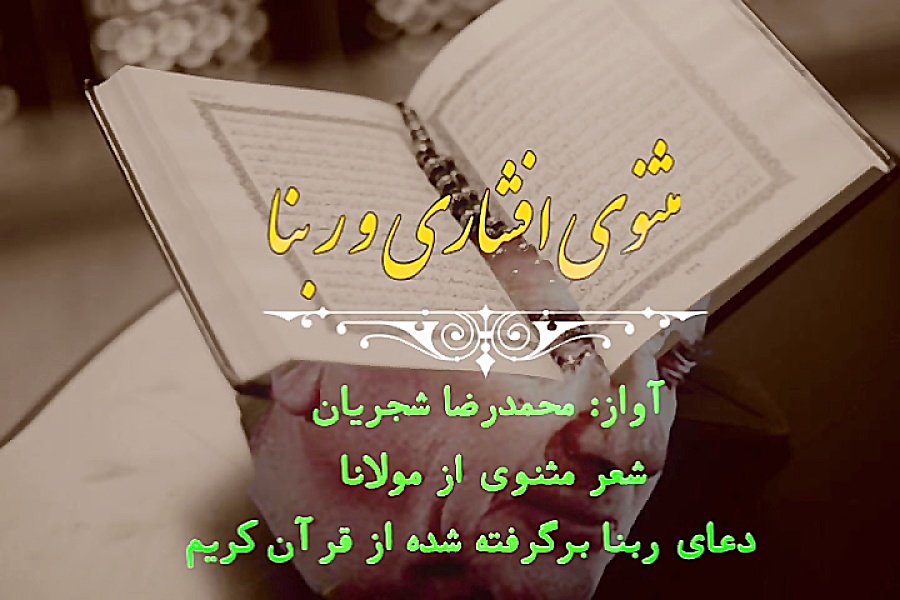 مثنوی افشاری و ربنا
آواز: محمدرضا شجریان
شعر مثنوی از مولانا
دعای ربنا برگرفته شده از قرآن کریم